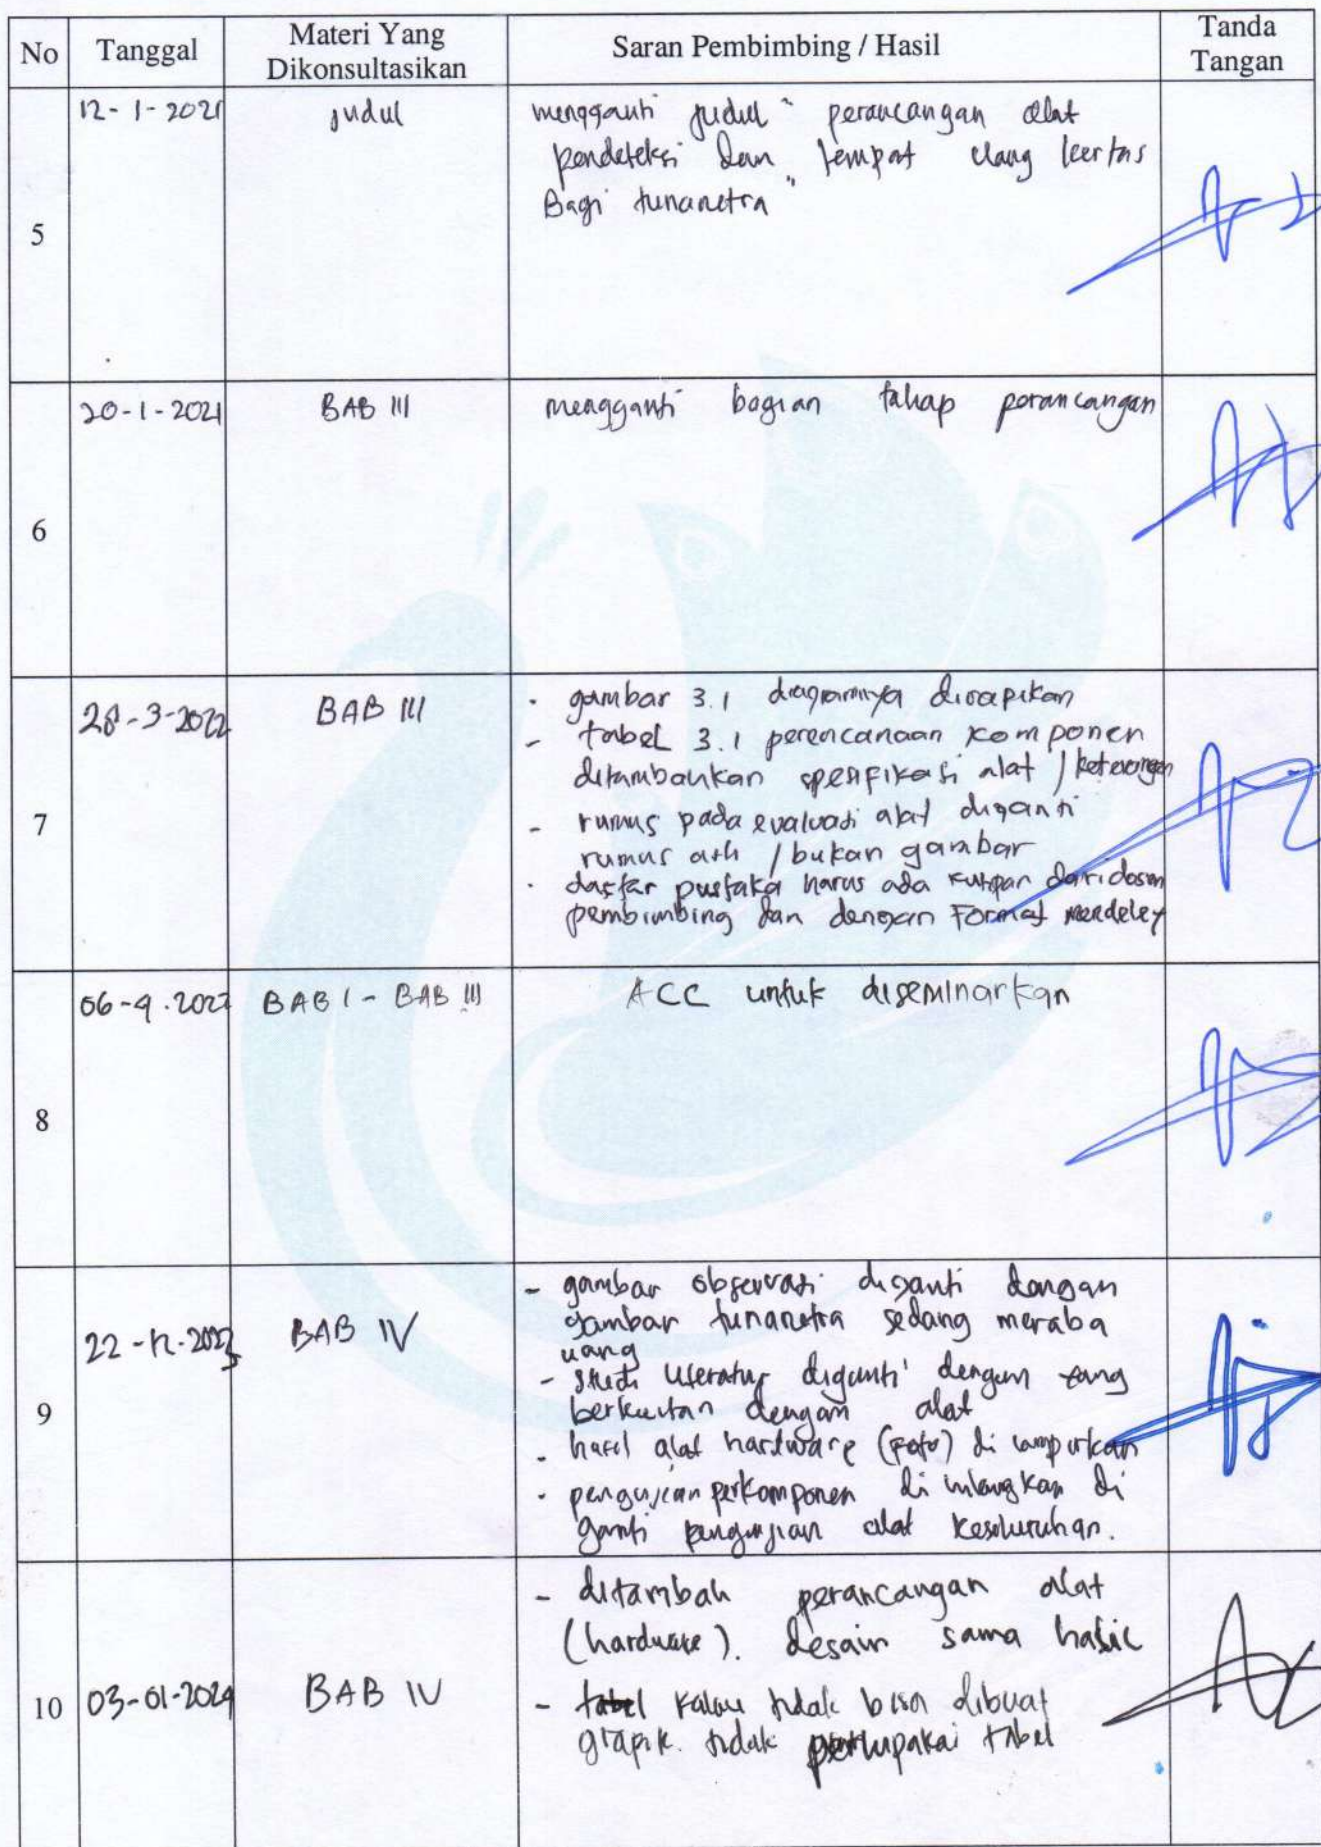 No Tanggal Materi Yang Dikonsultasikan Saran Pembimbing / Hasil Tanda Tangan
5 12-1-2021 judul mengganti judul " perancangan alat
pendeteksi dan tempat uang kertas
Bagi tunanetra "
6 20-1-2021 BAB III mengganti bagian tahap perancangan
7 28-3-2022 BAB III - gambar 3.1 diagramnya dirapikan
- tabel 3.1 perencanaan komponen
ditambahkan spesifikasi alat / keterangan
- rumus pada evaluasi alat diganti
rumus asli / bukan gambar
- daftar pustaka harus ada kutipan dari dosen
pembimbing dan dengan Format Mendeley
8 06-4-2022 BAB I - BAB III ACC untuk diseminarkan
9 22-12-2023 BAB IV - gambar observasi diganti dengan
gambar tunanetra sedang meraba
uang
- studi literatur diganti dengan yang
berkaitan dengan alat
- hasil alat hardware (Foto) di lampirkan
- pengujian perkomponen di hilangkan di
ganti pengujian alat keseluruhan.
10 03-01-2024 BAB IV - ditambah perancangan alat
(hardware). desain sama hasil
- tabel kalau tidak bisa dibuat
grapik. tidak perlu pakai tabel